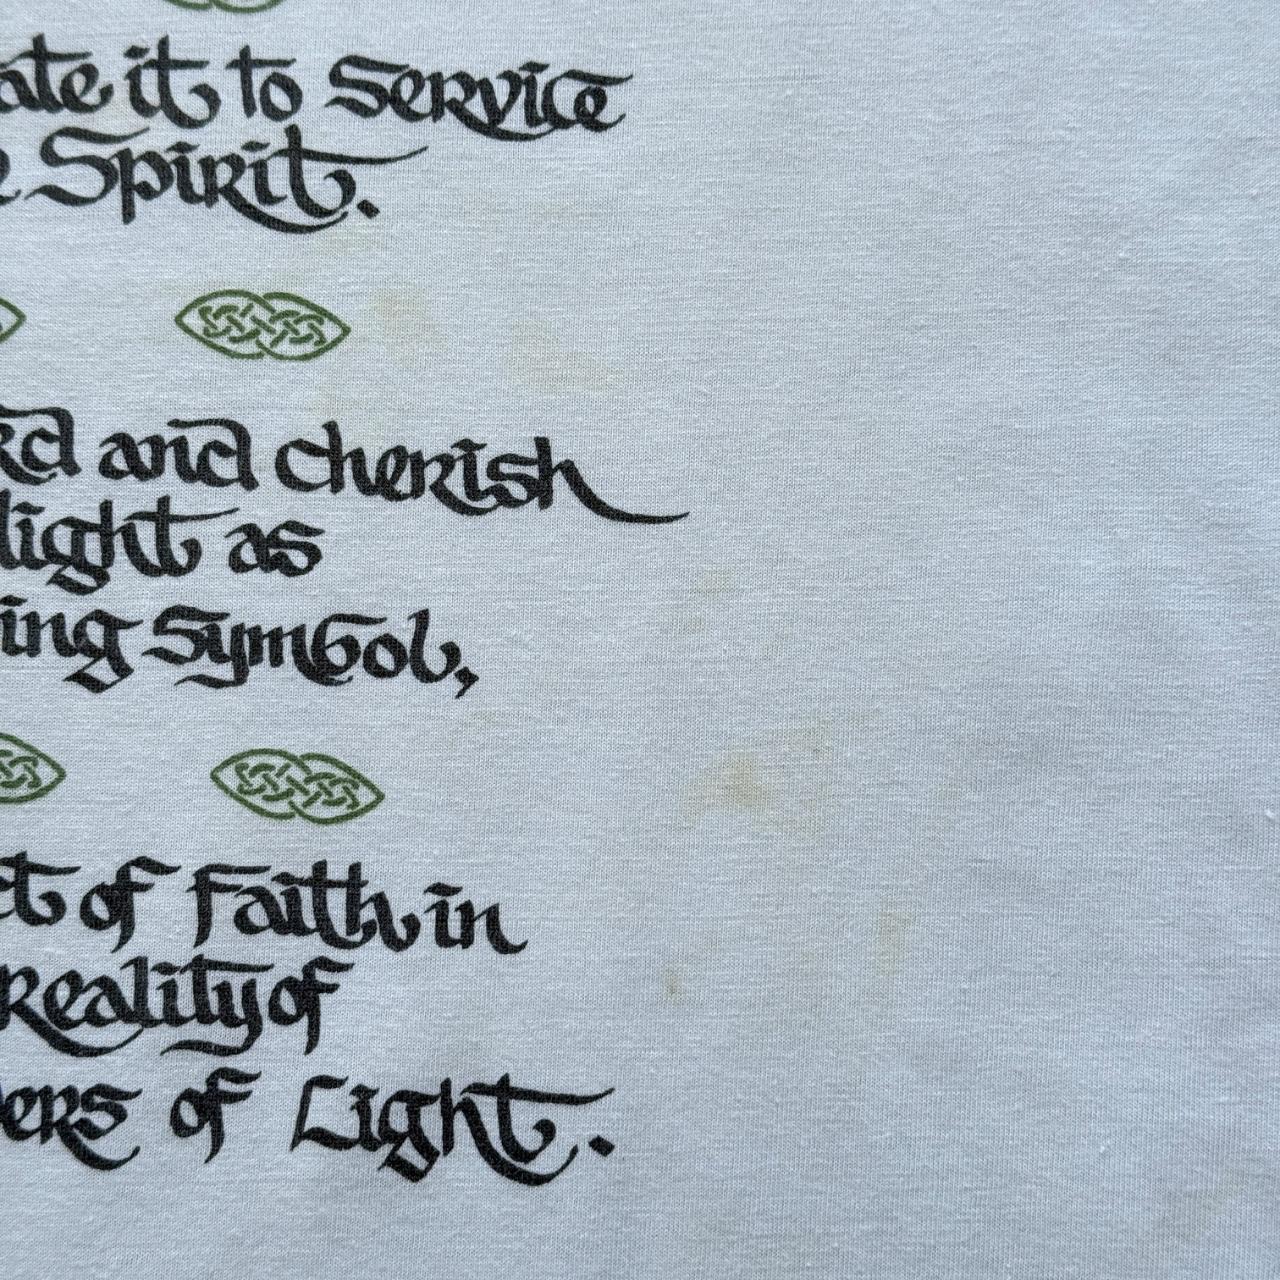 it to Service
Spirit.
and cherish
light as
Symbol,
of Faith in
Reality of
of Light.